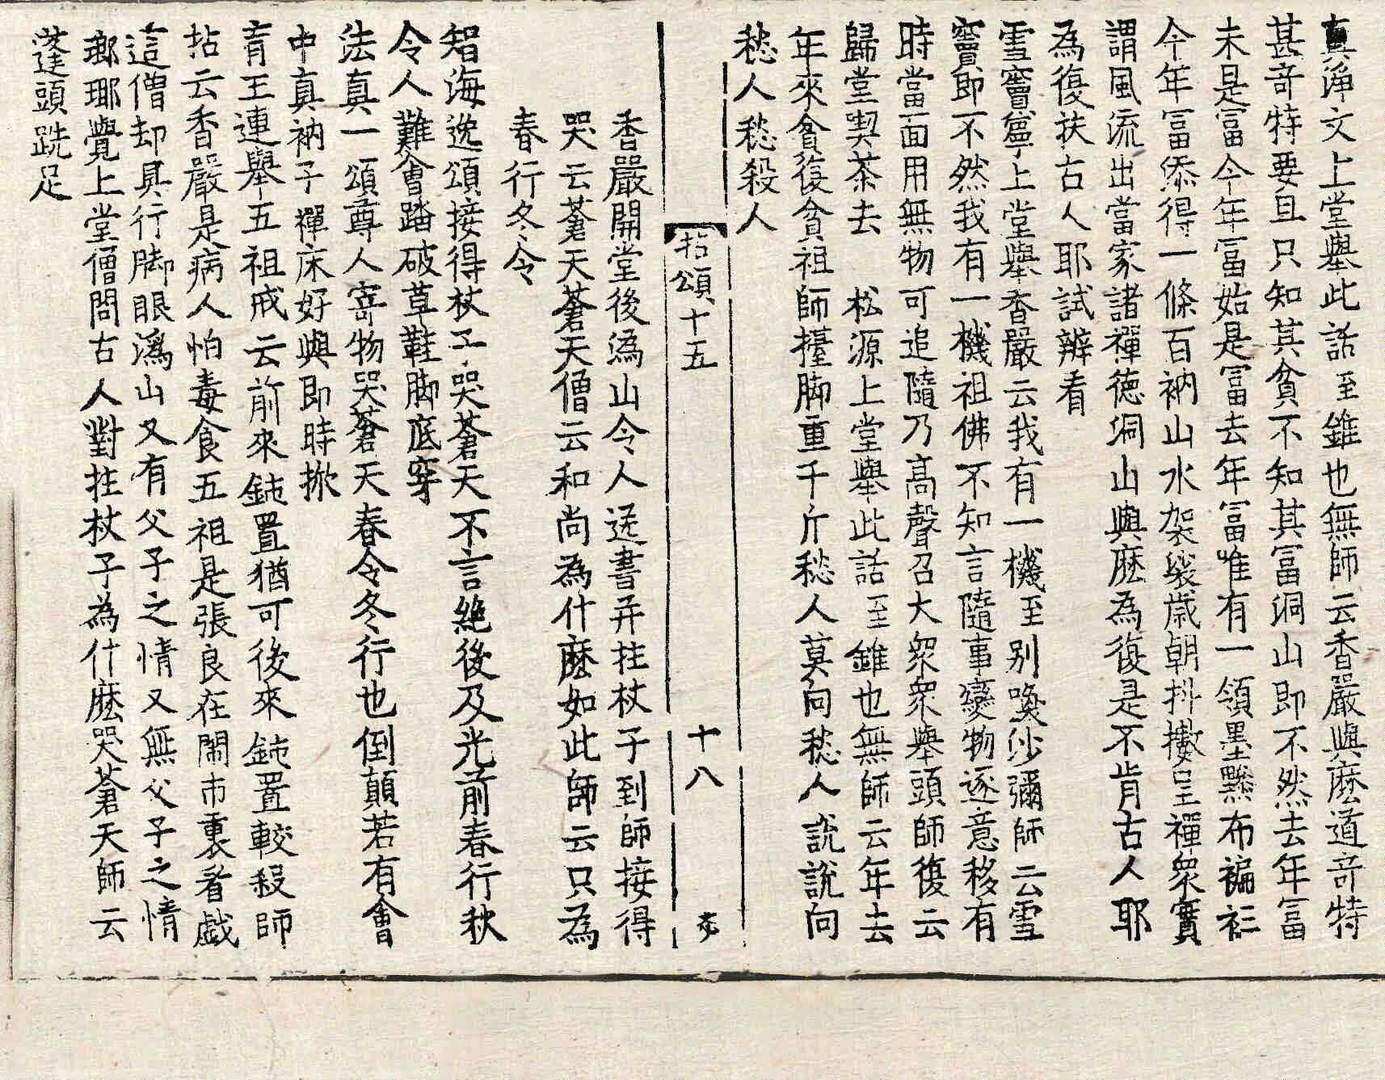 真淨文上堂舉此話至錐也無師云香嚴與麽道奇特
甚奇特要且只知其貧不知其冨洞山即不然去年冨
未是冨今年冨始是冨去年冨唯有一領墨黲布褊衫
今年冨添得一條百衲山水袈裟歲朝抖擻呈禪衆實
謂風流出當家諸禪德洞山與麽為復是不肯古人耶
為復扶古人耶試辨看
雪竇寧上堂舉香嚴云我有一機至別喚沙彌師云雪
竇即不然我有一機祖佛不知言隨事變物逐意移有
時當面用無物可追隨乃高聲召大衆衆舉頭師復云
歸堂喫茶去 松源上堂舉此話至錐也無師云年去
年來貧復貧祖師擡脚重千斤愁人莫向愁人說說向
愁人愁殺人
拈頌十五 十八
香嚴開堂後溈山令人送書并拄杖子到師接得
哭云蒼天蒼天僧云和尚為什麽如此師云只為
春行冬令
智海逸頌接得杖子哭蒼天不言絶後及光前春行秋
令人難會踏破草鞋脚底穿
法真一頌尊人寄物哭蒼天春令冬行也倒顛若有會
中真衲子禪床好與即時掀
育王連舉五祖戒云前來鈍置猶可後來鈍置較殺師
拈云香嚴是病人怕毒食五祖是張良在閙市裏看戲
這僧却具行脚眼溈山又有父子之情又無父子之情
瑯琊覺上堂僧問古人對拄杖子為什麽哭蒼天師云
蓬頭跣足